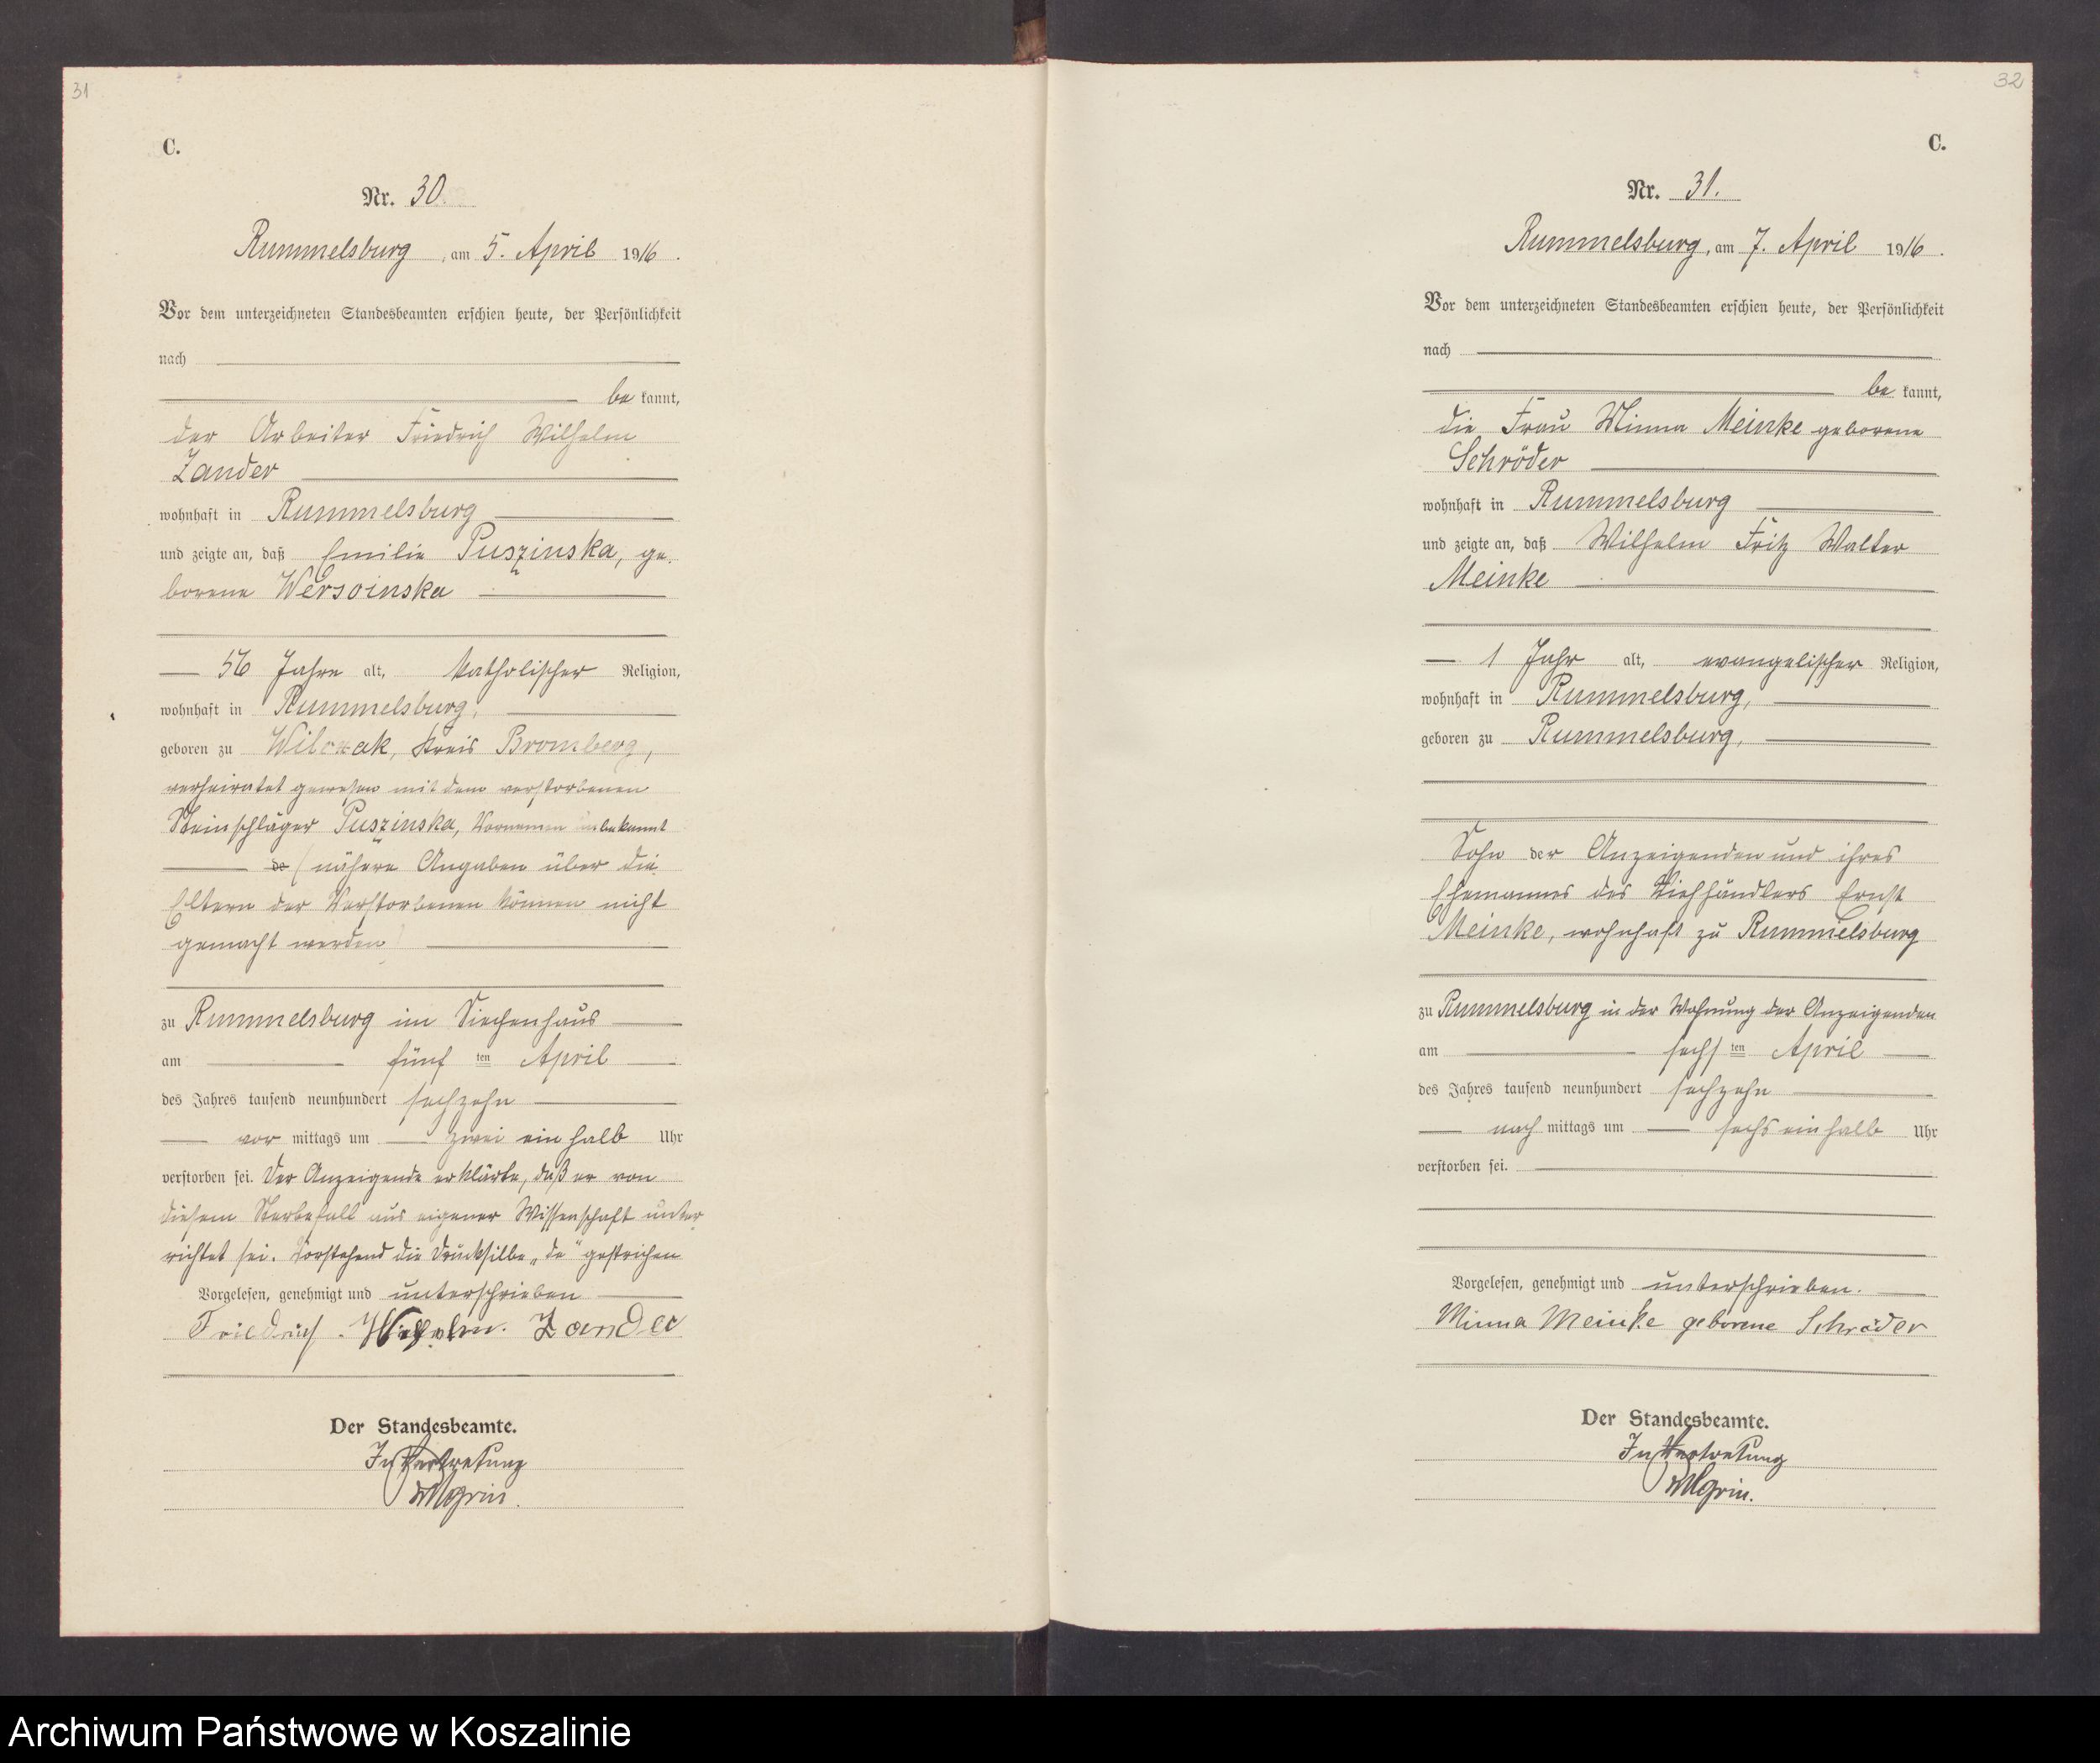 31
C.
Nr. 30.
Rummelsburg, am 5. April 1916.
Vor dem unterzeichneten Standesbeamten erschien heute, der Persönlichkeit
nach
be kannt,
der Arbeiter Friedrich Wilhelm
Zander
wohnhaft in Rummelsburg
und zeigte an, daß Emilie Puszinska, ge-
borene Wersoinska
56 Jahre alt, katholischer Religion,
wohnhaft in Rummelsburg,
geboren zu Wilczak, Kreis Bromberg,
verheiratet gewesen mit dem verstorbenen
Steinschläger Puszinska, Vornamen unbekannt
de (nähere Angaben über die
Eltern der Verstorbenen können nicht
gemacht werden)
zu Rummelsburg im Siechenhaus
am fünf ten April
des Jahres tausend neunhundert sechzehn
vor mittags um zwei ein halb Uhr
verstorben sei. Der Anzeigende erklärte, daß er von
diesem Sterbefall aus eigener Wissenschaft unter
richtet sei. Vorstehend die Drucksilbe „de" gestrichen
Vorgelesen, genehmigt und unterschrieben
Friedrich Wilhelm Zander
Der Standesbeamte.
In Vertretung
32
C.
Nr. 31.
Rummelsburg, am 7. April 1916.
Vor dem unterzeichneten Standesbeamten erschien heute, der Persönlichkeit
nach
be kannt,
die Frau Minna Meinke geborene
Schröder
wohnhaft in Rummelsburg
und zeigte an, daß Wilhelm Fritz Walter
Meinke
1 Jahr alt, evangelischer Religion,
wohnhaft in Rummelsburg,
geboren zu Rummelsburg,
Sohn der Anzeigenden und ihres
Ehemannes des Viehhändlers Ernst
Meinke, wohnhaft zu Rummelsburg
zu Rummelsburg in der Wohnung der Anzeigenden
am sechs ten April
des Jahres tausend neunhundert sechzehn
nach mittags um sechs ein halb Uhr
verstorben sei.
Vorgelesen, genehmigt und unterschrieben.
Minna Meinke geborene Schröder
Der Standesbeamte.
In Vertretung
Archiwum Państwowe w Koszalinie